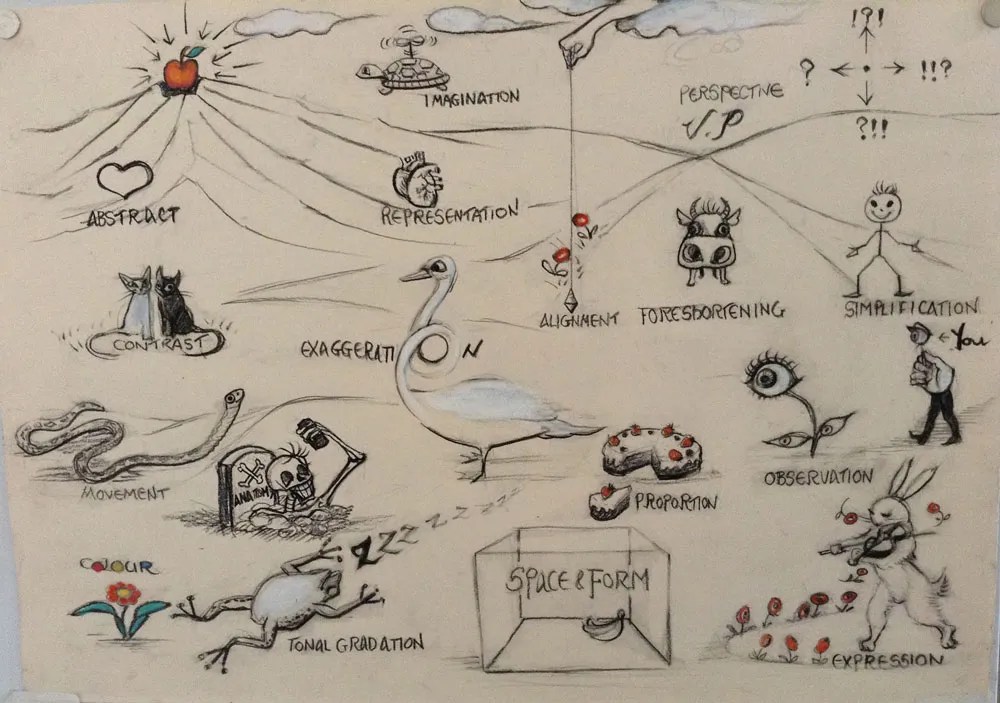 !?!
? !!?
?!!
IMAGINATION
PERSPECTIVE
V.P
ABSTRACT
REPRESENTATION
ALIGNMENT
FORESHORTENING
SIMPLIFICATION
CONTRAST
EXAGGERATION
You
MOVEMENT
ANATOMY
PROPORTION
OBSERVATION
ZZZZZZZZZ
COLOUR
SPACE & FORM
TONAL GRADATION
EXPRESSION